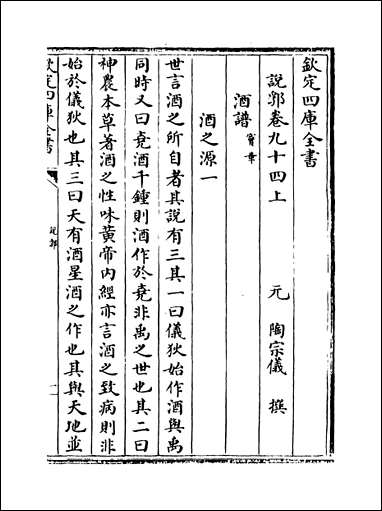 欽定四庫全書
說郛卷九十四上
元 陶宗儀 撰
酒譜 竇苹
酒之源一
世言酒之所自者其說有三其一曰儀狄始作酒與禹
同時又曰堯酒千鍾則酒作於堯非禹之世也其二曰
神農本草著酒之性味黃帝内經亦言酒之致病則非
始於儀狄也其三曰天有酒星酒之作也其與天地並
欽定四庫全書
說郛